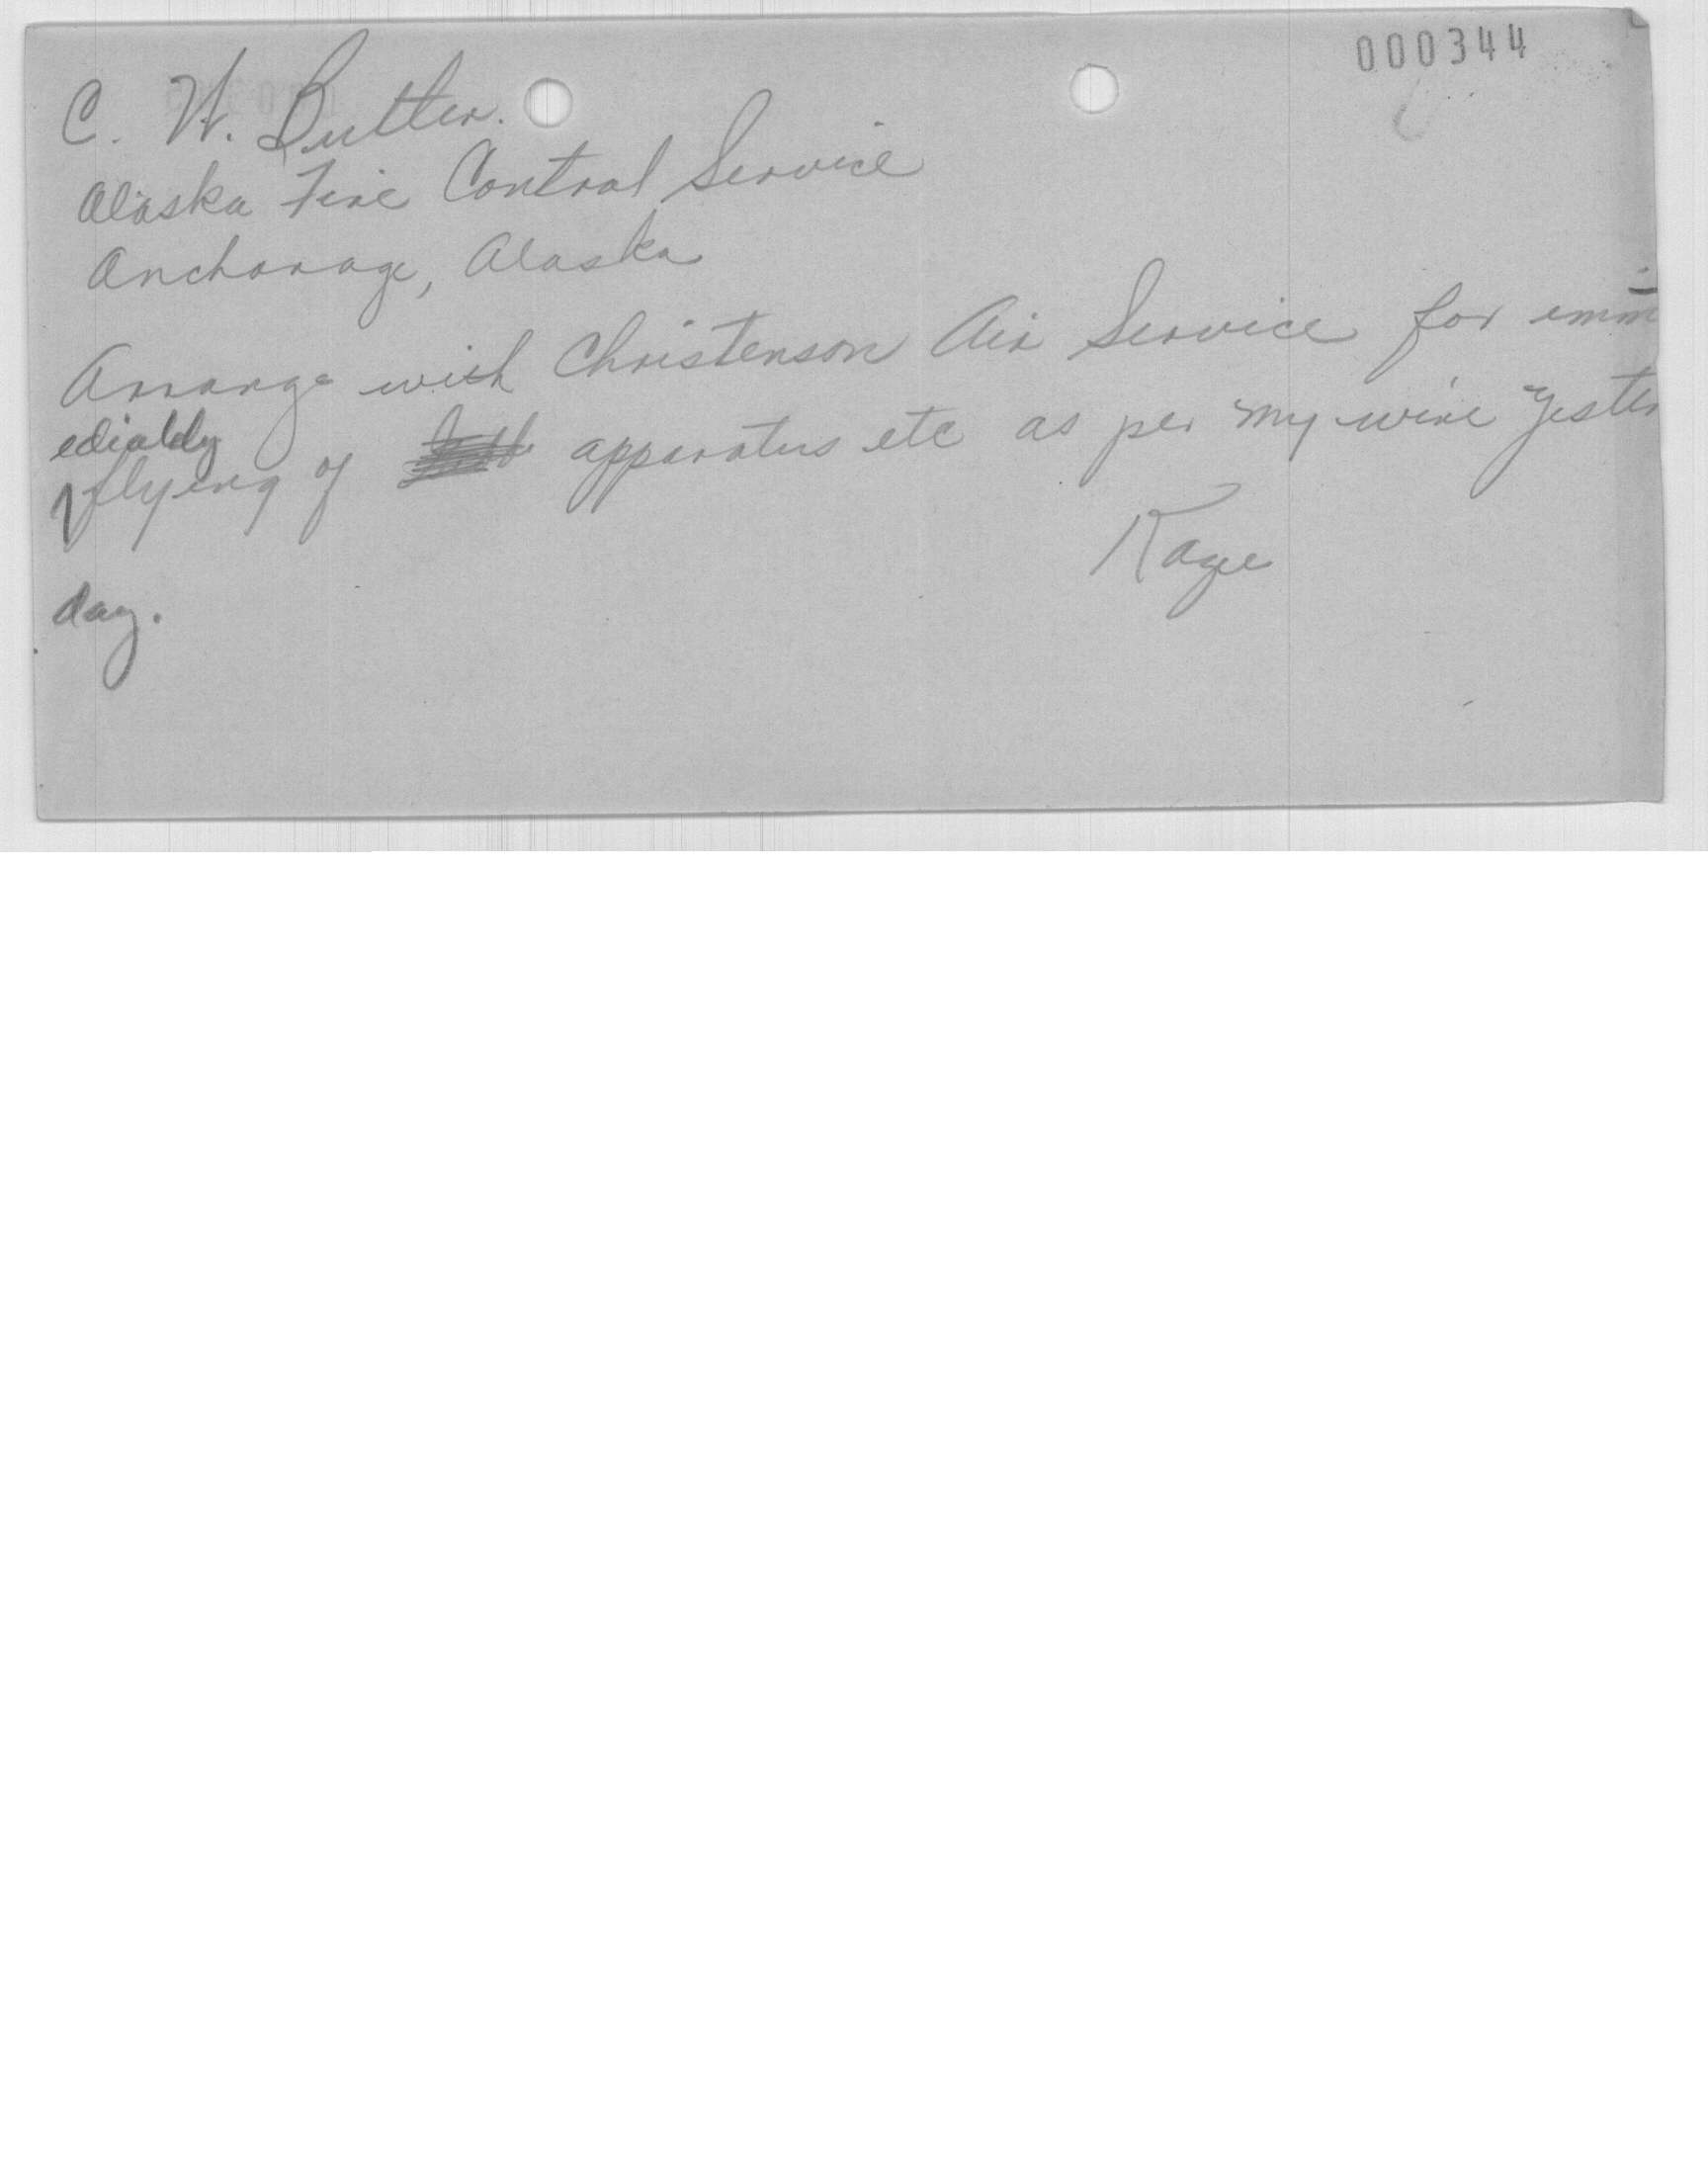 000344
C. W. Butler.
Alaska Fire Control Service
Anchorage, Alaska
Arrange with Christenson Air Service for imm
ediately
flying of apparatus etc as per my wire yester
day.
Kagee